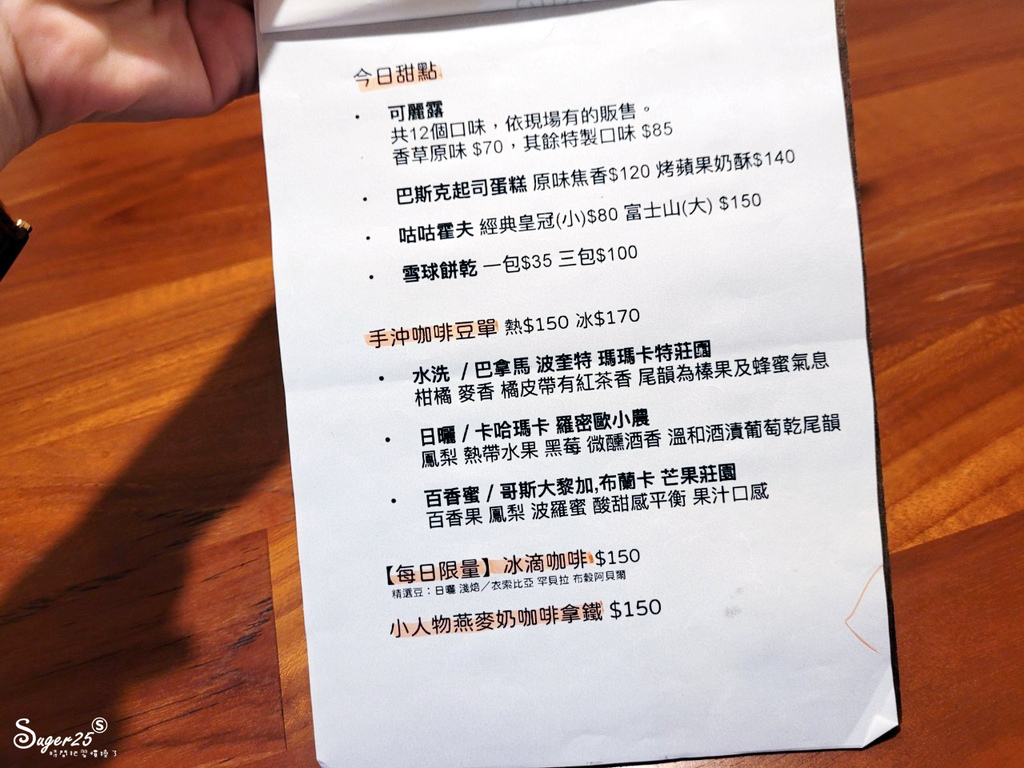 今日甜點
• 可麗露
共12個口味，依現場有的販售。
香草原味 $70，其餘特製口味 $85
• 巴斯克起司蛋糕 原味焦香$120 烤蘋果奶酥$140
• 咕咕霍夫 經典皇冠(小)$80 富士山(大) $150
• 雪球餅乾 一包$35 三包$100
手沖咖啡豆單 熱$150 冰$170
• 水洗 / 巴拿馬 波奎特 瑪瑪卡特莊園
柑橘 麥香 橘皮帶有紅茶香 尾韻為榛果及蜂蜜氣息
• 日曬 / 卡哈瑪卡 羅密歐小農
鳳梨 熱帶水果 黑莓 微醺酒香 溫和酒漬葡萄乾尾韻
• 百香蜜 / 哥斯大黎加,布蘭卡 芒果莊園
百香果 鳳梨 波羅蜜 酸甜感平衡 果汁口感
【每日限量】冰滴咖啡 $150
精選豆：日曬 淺焙／衣索比亞 罕貝拉 布穀阿貝爾
小人物燕麥奶咖啡拿鐵 $150
Suger25 S
時間把習慣換了